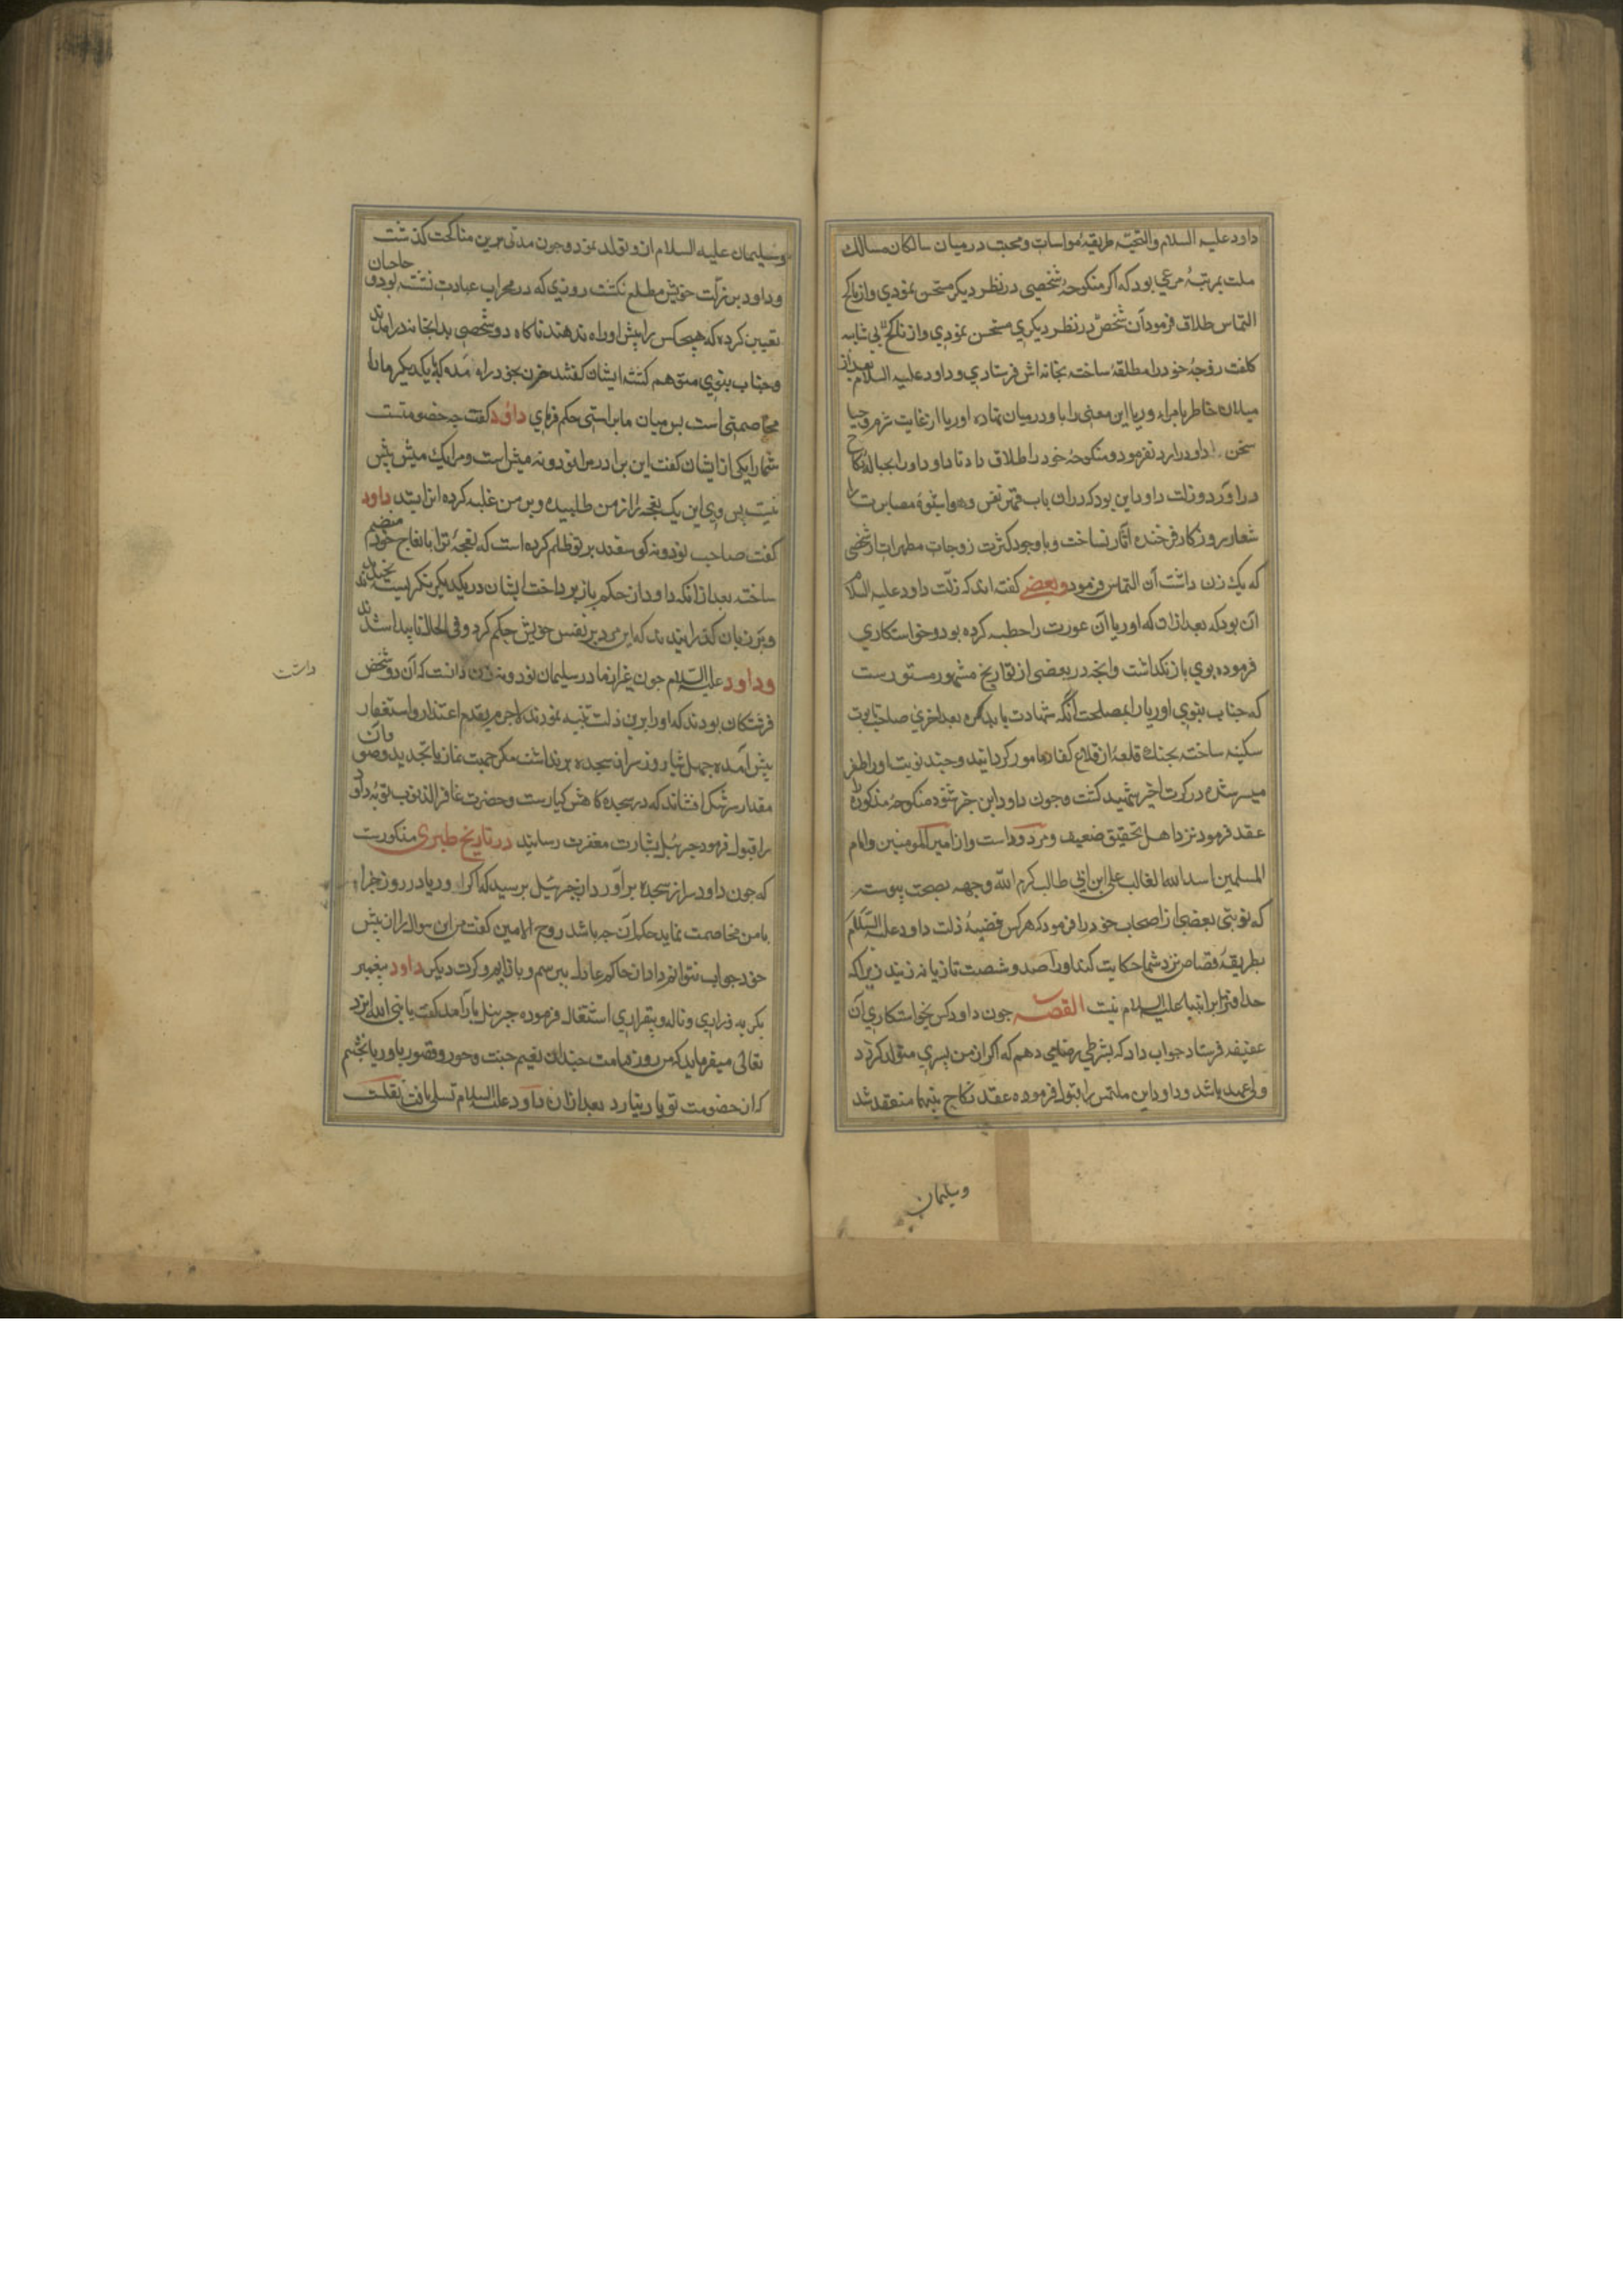 داود علیه السلام والتحیّه طریقهٔ مواسات و محبت در میان سالکان مسالک
ملت بمرتبهٔ مرعی بود که اکر منکوحهٔ شخصی در نظر دیکر مستحسن نمودی و از ناکح
التماس طلاق فرمود آن شخص در نظر دیکری مستحسن نمودی و از ناکح بی شایبه
کلفت زوجهٔ خود را مطلقه ساخته بخانه اش فرستادی و داود علیه السلام بعد از
میلان خاطر بامراه اوریا این معنی را با او در میان نهاده اوریا از غایت شرم و حیا
سخن داود را رد نفرمود و منکوحهٔ خود را طلاق داد تا داود او را بحبالهٔ نکاح
در آورد و زلت داود این بود که در آن باب قهر نفس و هوا بنموده مصابرت را
شعار روزکار فرخنده آثار نساخت و با وجود کثرت زوجات مطهرات از شخصی
که یک زن داشت آن التماس فرمود و بعضی کفته اند که زلّت داود علیه السلام
آن بود که بعد از آن که اوریا آن عورت را خطبه کرده بود و خواستکاری
فرموده بوی بازنکداشت و آنچه در بعضی از تواریخ مشهور مستورست
که جناب نبوی اوریا را بمصلحت آنکه شهادت یابد کره بعد اخری صاحب تابوت
سکینه ساخته بجنک قلعهٔ از قلاع کفار مامور کردانید و چند نوبت او را ظفر
میسر شده در کرت اخیر شهید کشت و چون داود این خبر شنود منکوحهٔ مذکوره
عقد فرمود نزد اهل تحقیق ضعیف و مردود است و از امیر المومنین و امام
المسلمین اسد الله الغالب علی ابن ابی طالب کرم الله وجهه بصحت پیوسته
که نوبتی بعضی از اصحاب خود را فرمود که هر کس قضیهٔ زلت داود علیه السّلام
بطریقهٔ قصاص نزد شما حکایت کند او را صد و شصت تازیانه زنید زیرا که
حد افترا بر انبیا علیه السلام نیست القصه چون داود کس بخواستکاری آن
عفیفه فرستاد جواب داد که بشرطی رضا می دهم که اکر از من پسری متولد کردد
ولی عهد باشد و داود این ملتمس را قبول فرموده عقد نکاح بینهما منعقد شد
وسلیمان
وسلیمان علیه السلام از و تولد نمود و چون مدتی برین مناکحت کذشت
و داود بر زلّت خویش مطلع نکشت روزی که در محراب عبادت نشسته بود و حاجبان
تعیین کرده که هیچکس را پیش او راه ندهند ناکاه دو شخص بدانجا در آمدند
و جناب نبوی متوهم کشته ایشان کفتند حزن بخود راه مده که یکدیکر ما را
مخاصمتی است پس میان ما براستی حکم فرمای داود کفت چه خصومتست
شما را یکی از ایشان کفت این برادر مرا نود و نه میش است و مرا یک میش بیش
نیست پس وی این یک نعجه را از من طلبیده و بر من غلبه کرده انرا بستد داود
کفت صاحب نود و نه کوسفند بر تو ظلم کرده است که نعجهٔ ترا با نعاج خود منضم
ساخته بعد از آنکه داود از حکم باز پرداخت ایشان در یکدیکر نکریسته بخندیدند
و بر زبان کذرانیدند که این مرد بر نفس خویش حکم کرد و فی الحال ناپیدا شدند
و داود علیه السّلام چون غیر از مادر سلیمان نود و نه زن دانست که آن دو شخص
داشت
فرشتکان بودند که او را برین زلت تنبیه نمودند لاجرم بقدم اعتذار و استغفار
پیش آمده چهل شبانروز سر از سجده بر نداشت مکر جهت نماز یا تجدید وضو و آن
مقدار سرشک افشاند که در سجده کاهش کیا رست و حضرت غافر الذنوب توبهٔ داود
را قبول فرمود جبرئیل بشارت مغفرت رسانید در تاریخ طبری مذکورست
که چون داود سر از سجده بر آورد از جبرئیل پرسید که اکر اوریا در روز جزا
با من مخاصمت نماید حکم آن چه باشد روح الامین کفت من این سوال را از پیش
خود جواب نتوانم داد از حاکم عادل بپرسم و باز آیم و کرت دیکر داود پیغمبر
بکریه و زاری و ناله و بیقراری اشتغال فرموده جبرئیل باز آمد کفت یا نبی الله ایزد
تعالی میفرماید که من روز قیامت چندان نعیم جنت و حور و قصور باوریا بخشم
که از خصومت تو یاد نیارد بعد از آن داود علیه السلام تسلی یافت نقلست